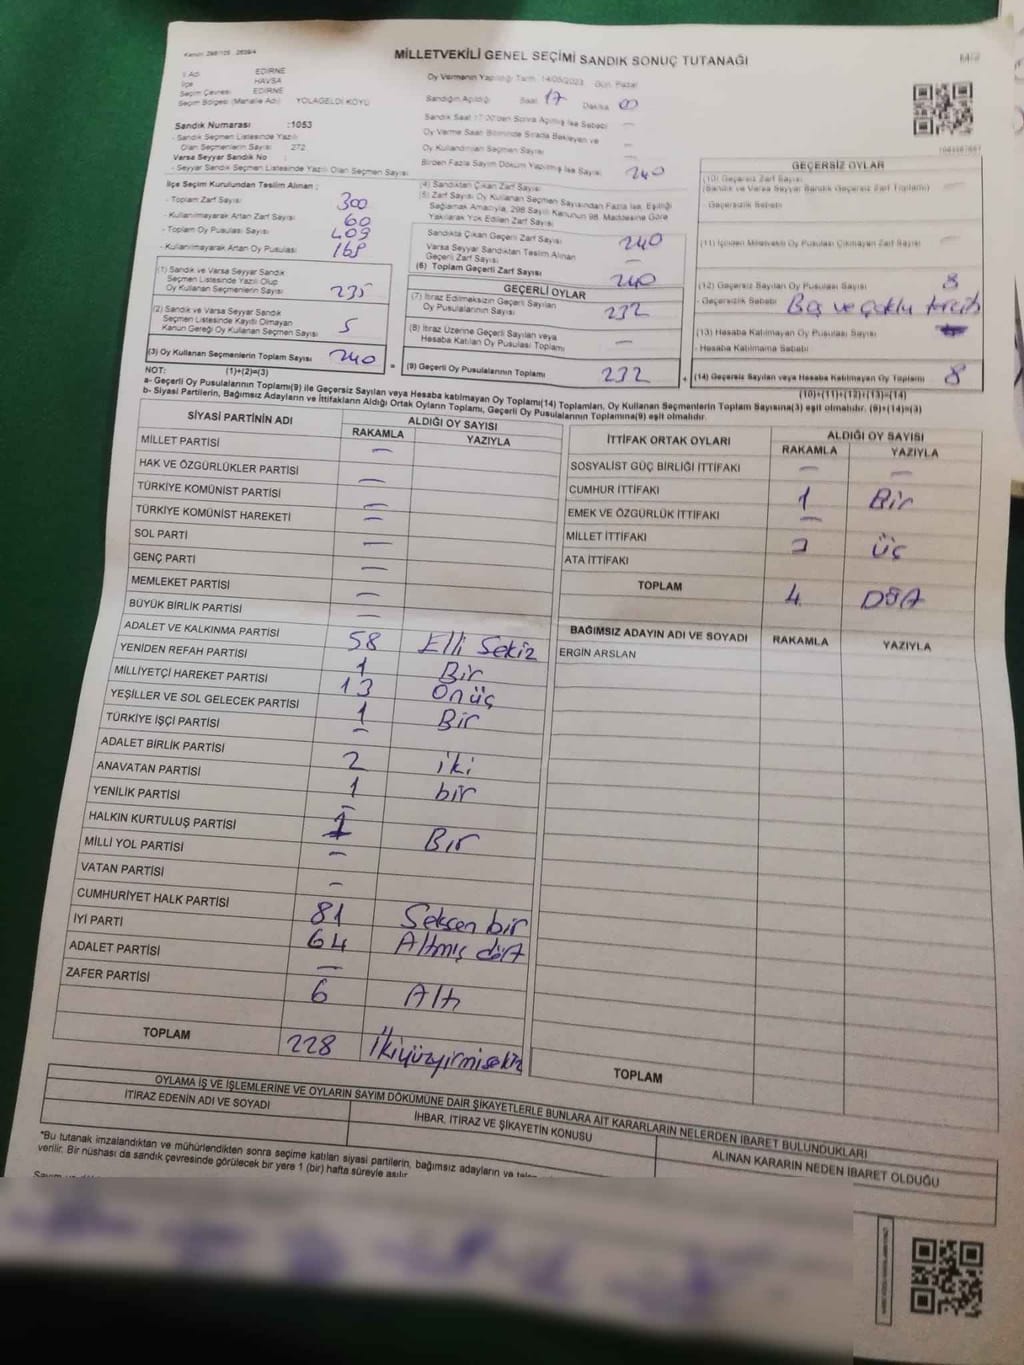 MİLLETVEKİLİ GENEL SEÇİMİ SANDIK SONUÇ TUTANAĞI
İl Adı EDİRNE
İlçe HAVSA
Seçim Çevresi EDİRNE
Seçim Bölgesi (Mahalle Adı) YOLAGELDİ KÖYÜ
Sandık Numarası :1053
- Sandık Seçmen Listesinde Yazılı
Olan Seçmenlerin Sayısı 272
Varsa Seyyar Sandık No :
- Seyyar Sandık Seçmen Listesinde Yazılı Olan Seçmen Sayısı
Oy Vermenin Yapıldığı Tarih 14/05/2023 Gün Pazar
Sandığın Açıldığı Saat 17 Dakika 00
Sandık Saat 17:00'den Sonra Açılmış İse Sebebi —
Oy Verme Saati Bitiminde Sırada Bekleyen ve
Oy Kullandırılan Seçmen Sayısı —
Birden Fazla Sayım Döküm Yapılmış İse Sayısı —
İlçe Seçim Kurulundan Teslim Alınan ;
- Toplam Zarf Sayısı 300
- Kullanılmayarak Artan Zarf Sayısı 60
- Toplam Oy Pusulası Sayısı 409
- Kullanılmayarak Artan Oy Pusulası 169
(1) Sandık ve Varsa Seyyar Sandık
Seçmen Listesinde Yazılı Olup
Oy Kullanan Seçmenlerin Sayısı 235
(2) Sandık ve Varsa Seyyar Sandık
Seçmen Listesinde Kayıtlı Olmayan
Kanun Gereği Oy Kullanan Seçmen Sayısı 5
(3) Oy Kullanan Seçmenlerin Toplam Sayısı 240
NOT: (1)+(2)=(3)
(4) Sandıktan Çıkan Zarf Sayısı 240
(5) Zarf Sayısı Oy Kullanan Seçmen Sayısından Fazla İse, Eşitliği
Sağlamak Amacıyla, 298 Sayılı Kanunun 98. Maddesine Göre
Yakılarak Yok Edilen Zarf Sayısı —
Sandıkta Çıkan Geçerli Zarf Sayısı 240
Varsa Seyyar Sandıktan Teslim Alınan
Geçerli Zarf Sayısı —
(6) Toplam Geçerli Zarf Sayısı 240
GEÇERLİ OYLAR
(7) İtiraz Edilmeksizin Geçerli Sayılan
Oy Pusulalarının Sayısı 232
(8) İtiraz Üzerine Geçerli Sayılan veya
Hesaba Katılan Oy Pusulası Toplamı —
= (9) Geçerli Oy Pusulalarının Toplamı 232
GEÇERSİZ OYLAR
(10) Geçersiz Zarf Sayısı
(Sandık ve Varsa Seyyar Sandık Geçersiz Zarf Toplamı) —
- Geçersizlik Sebebi
(11) İçinden Milletvekili Oy Pusulası Çıkmayan Zarf Sayısı —
(12) Geçersiz Sayılan Oy Pusulası Sayısı 8
- Geçersizlik Sebebi Boş ve çoklu tercih
(13) Hesaba Katılmayan Oy Pusulası Sayısı
- Hesaba Katılmama Sebebi
+ (14) Geçersiz Sayılan veya Hesaba Katılmayan Oy Toplamı 8
(10)+(11)+(12)+(13)=(14)
a- Geçerli Oy Pusulalarının Toplamı(9) ile Geçersiz Sayılan veya Hesaba Katılmayan Oy Toplamı(14) Toplamları, Oy Kullanan Seçmenlerin Toplam Sayısına(3) eşit olmalıdır. (9)+(14)=(3)
b- Siyasi Partilerin, Bağımsız Adayların ve İttifakların Aldığı Ortak Oyların Toplamı, Geçerli Oy Pusulalarının Toplamına(9) eşit olmalıdır.
SİYASİ PARTİNİN ADI ALDIĞI OY SAYISI
RAKAMLA YAZIYLA
MİLLET PARTİSİ —
HAK VE ÖZGÜRLÜKLER PARTİSİ —
TÜRKİYE KOMÜNİST PARTİSİ —
TÜRKİYE KOMÜNİST HAREKETİ —
SOL PARTİ —
GENÇ PARTİ —
MEMLEKET PARTİSİ —
BÜYÜK BİRLİK PARTİSİ —
ADALET VE KALKINMA PARTİSİ 58 Elli Sekiz
YENİDEN REFAH PARTİSİ 1 Bir
MİLLİYETÇİ HAREKET PARTİSİ 13 Onüç
YEŞİLLER VE SOL GELECEK PARTİSİ 1 Bir
TÜRKİYE İŞÇİ PARTİSİ —
ADALET BİRLİK PARTİSİ 2 iki
ANAVATAN PARTİSİ 1 bir
YENİLİK PARTİSİ —
HALKIN KURTULUŞ PARTİSİ 1 Bir
MİLLİ YOL PARTİSİ —
VATAN PARTİSİ —
CUMHURİYET HALK PARTİSİ 81 Seksen bir
İYİ PARTİ 64 Altmış dört
ADALET PARTİSİ —
ZAFER PARTİSİ 6 Altı
TOPLAM 228 İkiyüzyirmisekiz
İTTİFAK ORTAK OYLARI ALDIĞI OY SAYISI
RAKAMLA YAZIYLA
SOSYALİST GÜÇ BİRLİĞİ İTTİFAKI — —
CUMHUR İTTİFAKI 1 Bir
EMEK VE ÖZGÜRLÜK İTTİFAKI —
MİLLET İTTİFAKI 3 üç
ATA İTTİFAKI
TOPLAM 4 Dört
BAĞIMSIZ ADAYIN ADI VE SOYADI RAKAMLA YAZIYLA
ERGİN ARSLAN
TOPLAM
OYLAMA İŞ VE İŞLEMLERİNE VE OYLARIN SAYIM DÖKÜMÜNE DAİR ŞİKAYETLERLE BUNLARA AİT KARARLARIN NELERDEN İBARET BULUNDUKLARI
İTİRAZ EDENİN ADI VE SOYADI İHBAR, İTİRAZ VE ŞİKAYETİN KONUSU ALINAN KARARIN NEDEN İBARET OLDUĞU
*Bu tutanak imzalandıktan ve mühürlendikten sonra seçime katılan siyasi partilerin, bağımsız adayların ve
verilir. Bir nüshası da sandık çevresinde görülecek bir yere 1 (bir) hafta süreyle asılır.